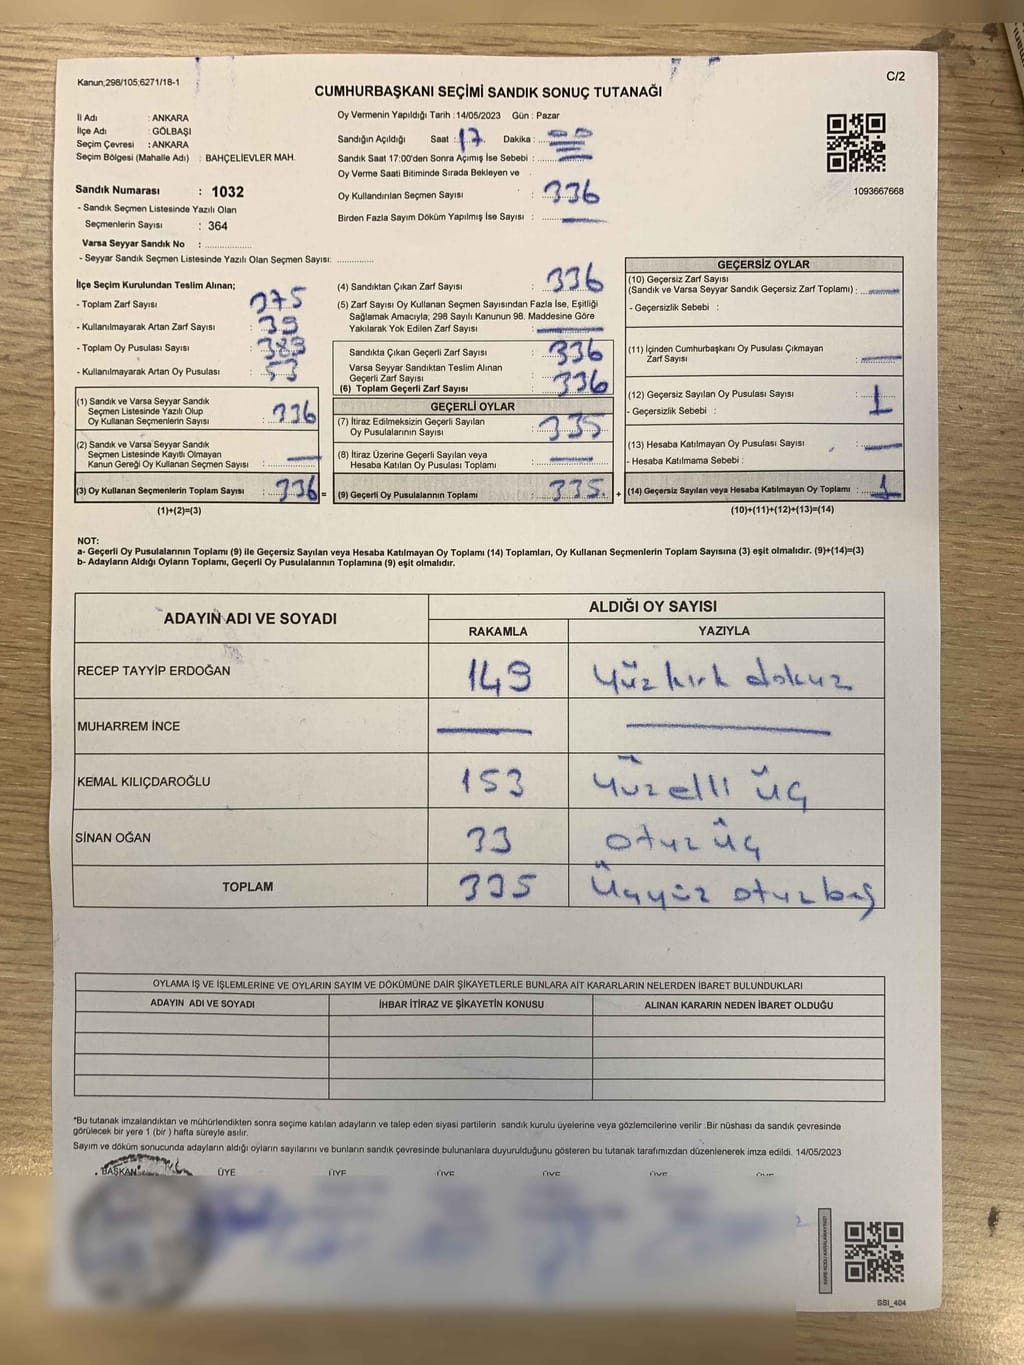 Kanun;298/105;6271/18-1
C/2
CUMHURBAŞKANI SEÇİMİ SANDIK SONUÇ TUTANAĞI
İl Adı : ANKARA
İlçe Adı : GÖLBAŞI
Seçim Çevresi : ANKARA
Seçim Bölgesi (Mahalle Adı) : BAHÇELİEVLER MAH.
Sandık Numarası : 1032
- Sandık Seçmen Listesinde Yazılı Olan
Seçmenlerin Sayısı : 364
Varsa Seyyar Sandık No :
- Seyyar Sandık Seçmen Listesinde Yazılı Olan Seçmen Sayısı:
Oy Vermenin Yapıldığı Tarih : 14/05/2023 Gün : Pazar
Sandığın Açıldığı Saat : 17 Dakika : 00
Sandık Saat 17:00'den Sonra Açımış İse Sebebi :
Oy Verme Saati Bitiminde Sırada Bekleyen ve
Oy Kullandırılan Seçmen Sayısı : 336
Birden Fazla Sayım Döküm Yapılmış İse Sayısı :
1093667668
İlçe Seçim Kurulundan Teslim Alınan;
- Toplam Zarf Sayısı : 375
- Kullanılmayarak Artan Zarf Sayısı : 39
- Toplam Oy Pusulası Sayısı : 389
- Kullanılmayarak Artan Oy Pusulası : 53
(1) Sandık ve Varsa Seyyar Sandık
Seçmen Listesinde Yazılı Olup
Oy Kullanan Seçmenlerin Sayısı : 336
(2) Sandık ve Varsa Seyyar Sandık
Seçmen Listesinde Kayıtlı Olmayan
Kanun Gereği Oy Kullanan Seçmen Sayısı :
(3) Oy Kullanan Seçmenlerin Toplam Sayısı : 336 =
(1)+(2)=(3)
(4) Sandıktan Çıkan Zarf Sayısı : 336
(5) Zarf Sayısı Oy Kullanan Seçmen Sayısından Fazla İse, Eşitliği
Sağlamak Amacıyla; 298 Sayılı Kanunun 98. Maddesine Göre
Yakılarak Yok Edilen Zarf Sayısı :
Sandıkta Çıkan Geçerli Zarf Sayısı : 336
Varsa Seyyar Sandıktan Teslim Alınan
Geçerli Zarf Sayısı :
(6) Toplam Geçerli Zarf Sayısı : 336
GEÇERLİ OYLAR
(7) İtiraz Edilmeksizin Geçerli Sayılan
Oy Pusulalarının Sayısı : 335
(8) İtiraz Üzerine Geçerli Sayılan veya
Hesaba Katılan Oy Pusulası Toplamı :
(9) Geçerli Oy Pusulalarının Toplamı : 335. +
GEÇERSİZ OYLAR
(10) Geçersiz Zarf Sayısı
(Sandık ve Varsa Seyyar Sandık Geçersiz Zarf Toplamı) :
- Geçersizlik Sebebi :
(11) İçinden Cumhurbaşkanı Oy Pusulası Çıkmayan
Zarf Sayısı :
(12) Geçersiz Sayılan Oy Pusulası Sayısı : 1
- Geçersizlik Sebebi :
(13) Hesaba Katılmayan Oy Pusulası Sayısı :
- Hesaba Katılmama Sebebi :
(14) Geçersiz Sayılan veya Hesaba Katılmayan Oy Toplamı : 1
(10)+(11)+(12)+(13)=(14)
NOT:
a- Geçerli Oy Pusulalarının Toplamı (9) ile Geçersiz Sayılan veya Hesaba Katılmayan Oy Toplamı (14) Toplamları, Oy Kullanan Seçmenlerin Toplam Sayısına (3) eşit olmalıdır. (9)+(14)=(3)
b- Adayların Aldığı Oyların Toplamı, Geçerli Oy Pusulalarının Toplamına (9) eşit olmalıdır.
ADAYIN ADI VE SOYADI
ALDIĞI OY SAYISI
RAKAMLA YAZIYLA
RECEP TAYYİP ERDOĞAN 149 Yüz kırk dokuz
MUHARREM İNCE
KEMAL KILIÇDAROĞLU 153 Yüzelli üç
SİNAN OĞAN 33 otuz üç
TOPLAM 335 Üçyüz otuzbeş
OYLAMA İŞ VE İŞLEMLERİNE VE OYLARIN SAYIM VE DÖKÜMÜNE DAİR ŞİKAYETLERLE BUNLARA AİT KARARLARIN NELERDEN İBARET BULUNDUKLARI
ADAYIN ADI VE SOYADI İHBAR İTİRAZ VE ŞİKAYETİN KONUSU ALINAN KARARIN NEDEN İBARET OLDUĞU
*Bu tutanak imzalandıktan ve mühürlendikten sonra seçime katılan adayların ve talep eden siyasi partilerin sandık kurulu üyelerine veya gözlemcilerine verilir .Bir nüshası da sandık çevresinde
görülecek bir yere 1 (bir ) hafta süreyle asılır.
Sayım ve döküm sonucunda adayların aldığı oyların sayılarını ve bunların sandık çevresinde bulunanlara duyurulduğunu gösteren bu tutanak tarafımızdan düzenlenerek imza edildi. 14/05/2023
BAŞKAN ÜYE ÜYE ÜYE ÜYE ÜYE ÜYE
SSI_404